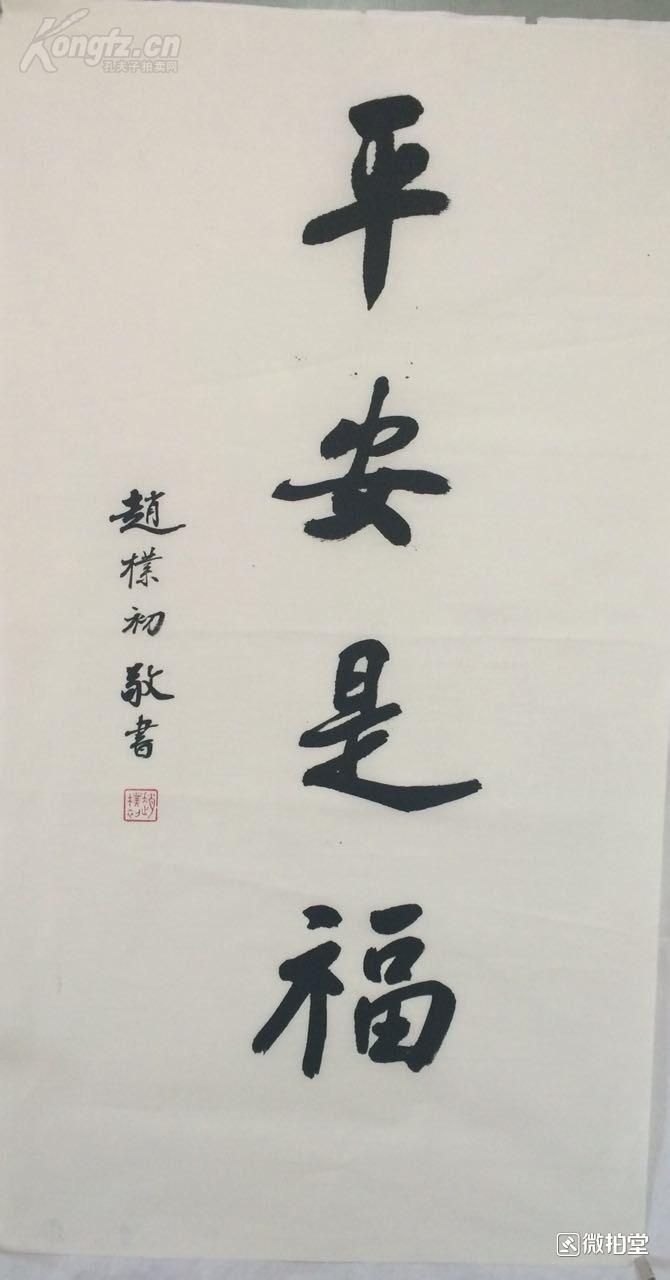 Kongfz.cn
孔夫子拍卖网
平安是福
趙樸初敬書
微拍堂